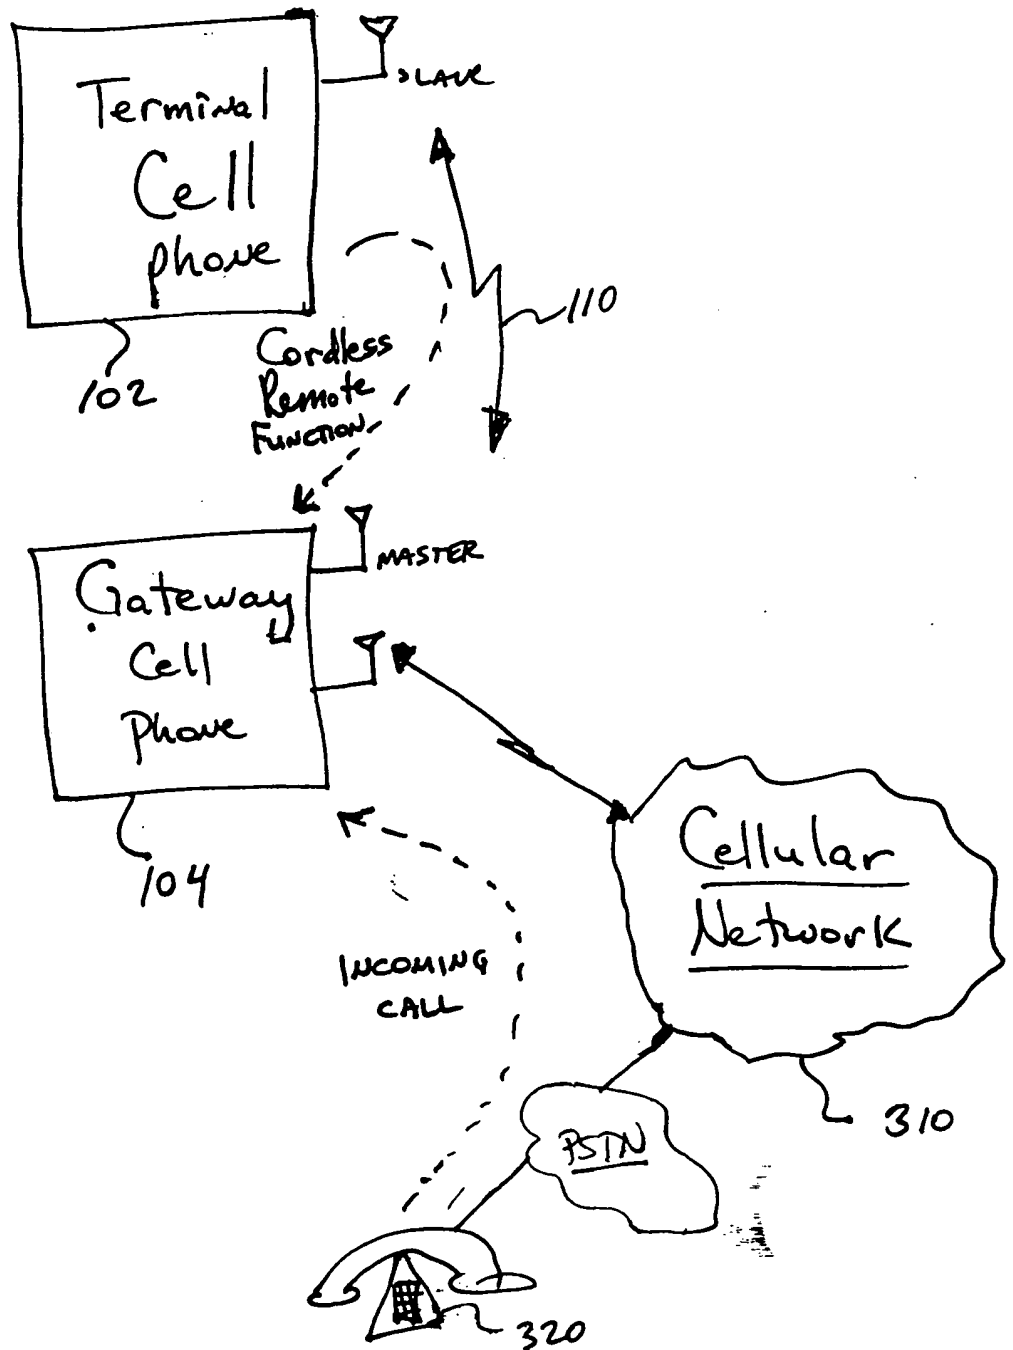 Terminal
Cell
phone
SLAVE
110
102
Cordless
Remote
FUNCTION
MASTER
Gateway
Cell
Phone
104
Cellular
Network
INCOMING
CALL
310
PSTN
320